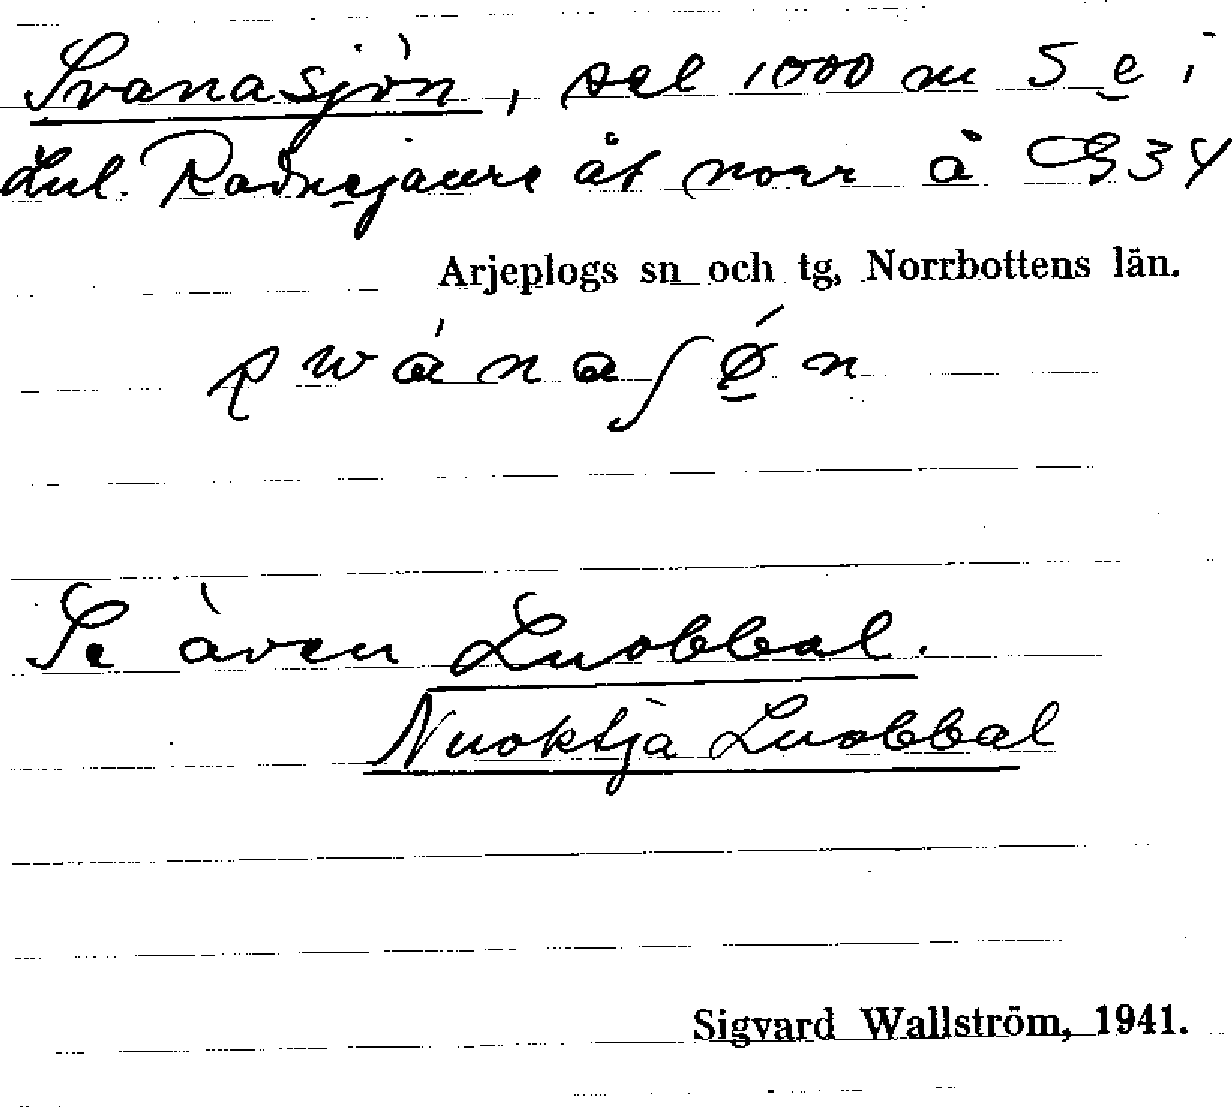 Svanasjön, sel 1000 m S e i
Lul. Radnejaure åt norr å G34
Arjeplogs sn och tg, Norrbottens län.
Se även Luobbal.
Nuoktja Luobbal
Sigvard Wallström, 1941.